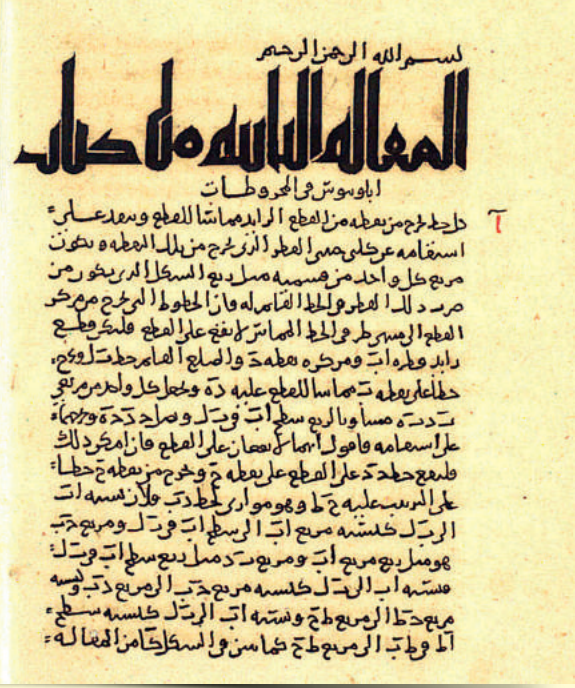 بسم الله الرحمن الرحيم
المقاله الثانيه من كتاب
ابلونيوس في المخروطات
آ
كل خط يخرج من نقطه من القطع الزايد مماسا للقطع وينفذ على
استقامه عن كلى جنبي القطر الذي يخرج من تلك النقطه ويكون
مربع كل واحد من قسميه مثل ربع الشكل الذي يكون من
ضرب ذلك القطر في الخط القائم له فان الخطوط التي تخرج من مركز
القطع الى طرفي الخط المماس لا تقع على القطع فليكن قطع
زايد وقطره اب ومركزه نقطه ح والضلع القائم خط ب ل ونخرج
خطا على نقطه ب مماسا للقطع عليه د ه ونجعل كل واحد من مربعي
ب د ب ه مساويا لربع سطح اب في ب ل ونصل ح د ح ه ونخرجهما
على استقامه فاقول انهما لا يقعان على القطع فان امكن ذلك
فليقع خط ح د على القطع على نقطه ج ونخرج من نقطه ج خطا
على الترتيب عليه ج ط وهو موازي لخط د ب فلان نسبه اب
الى ب ل كنسبه مربع اب الى سطح اب في ب ل ومربع ح ب
هو مثل ربع مربع اب ومربع ب د مثل ربع سطح اب في ب ل
فنسبه اب الى ب ل كنسبه مربع ح ب الى مربع د ب ونسبه
مربع ح ط الى مربع ط ج ونسبه اب الى ب ل كنسبه سطح
اط في ط ب الى مربع ط ج كما تبين في الشكل كا من المقاله